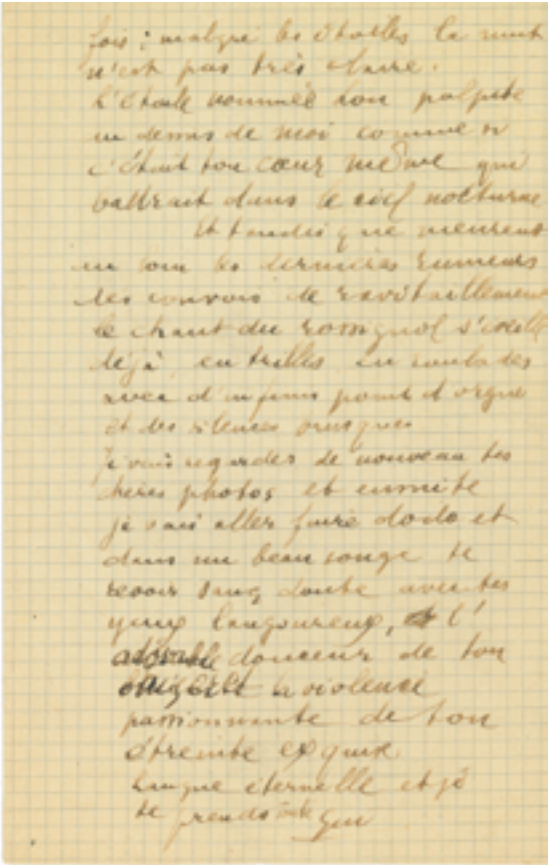 fois ; malgré les étoiles la nuit
n'est pas très claire.
L'étoile nommée Lou palpite
au dessus de moi comme si
c'était ton cœur même qui
battrait dans le ciel nocturne
Et tandis que meurent
au loin les dernières rumeurs
des convois de ravitaillement
le chant du rossignol s'éveille
déjà en trilles en roulades
avec d'infinis points d'orgue
et des silences brusques
Je vais regarder de nouveau tes
chères photos et ensuite
je vais aller faire dodo et
dans un beau songe te
revoir sans doute avec tes
yeux langoureux, l'
adorable douceur de ton
la violence
passionnante de ton
étreinte exquise
langue éternelle et je
te prends toute
Gui